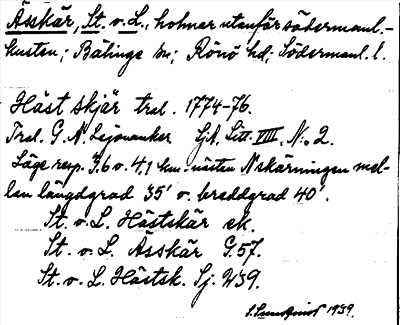 Ässkär, St. o. L., holmar utanför södermanl.-
kusten; Bälinge sn; Rönö hd; Södermanl. l.
Häst skjär tral. 1774-76.
Tral. G. A. Lejonanker GA. Litt. VIII. N:o 2.
Läge resp. 3,6 o. 4,1 km. nästan N skärningen mel-
lan längdgrad 35' o. breddgrad 40'.
St. o. L. Hästskär ek.
St. o. L. Ässkär G.57.
St. o. L. Hästsk. Sj. 1939.
1939.